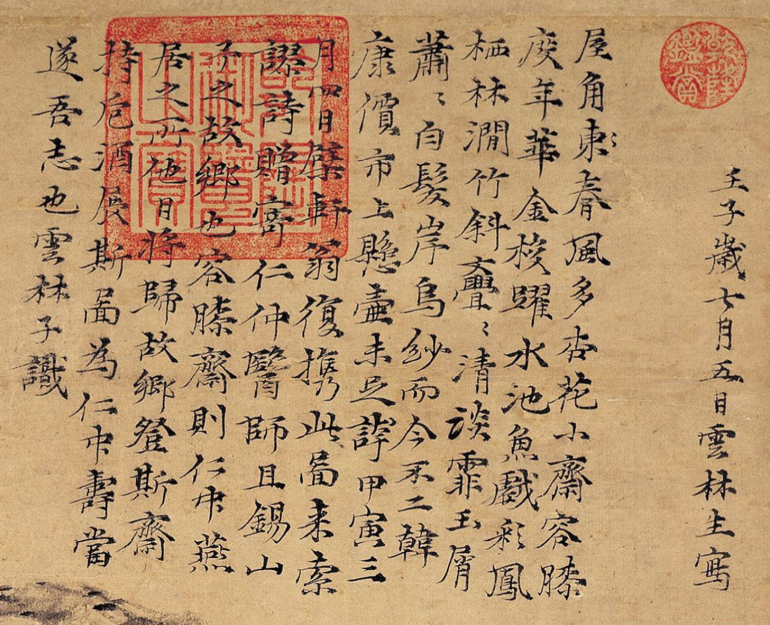 乾隆鑑賞
壬子歲七月五日雲林生寫
屋角東〻春風多杏花小齋容膝
度年華金梭躍水池魚戲彩鳳
栖林澗竹斜亹〻清談霏玉屑
蕭〻白髮岸烏紗而今不二韓
康價市上懸壺未足誇甲寅三
月四日檗軒翁復携此啚来索
謬詩贈寄仁仲醫師且錫山
予之故鄉也容膝齋則仁中燕
居之所他日將歸故鄉登斯齋
持卮酒展斯啚為仁中壽當
遂吾志也雲林子識